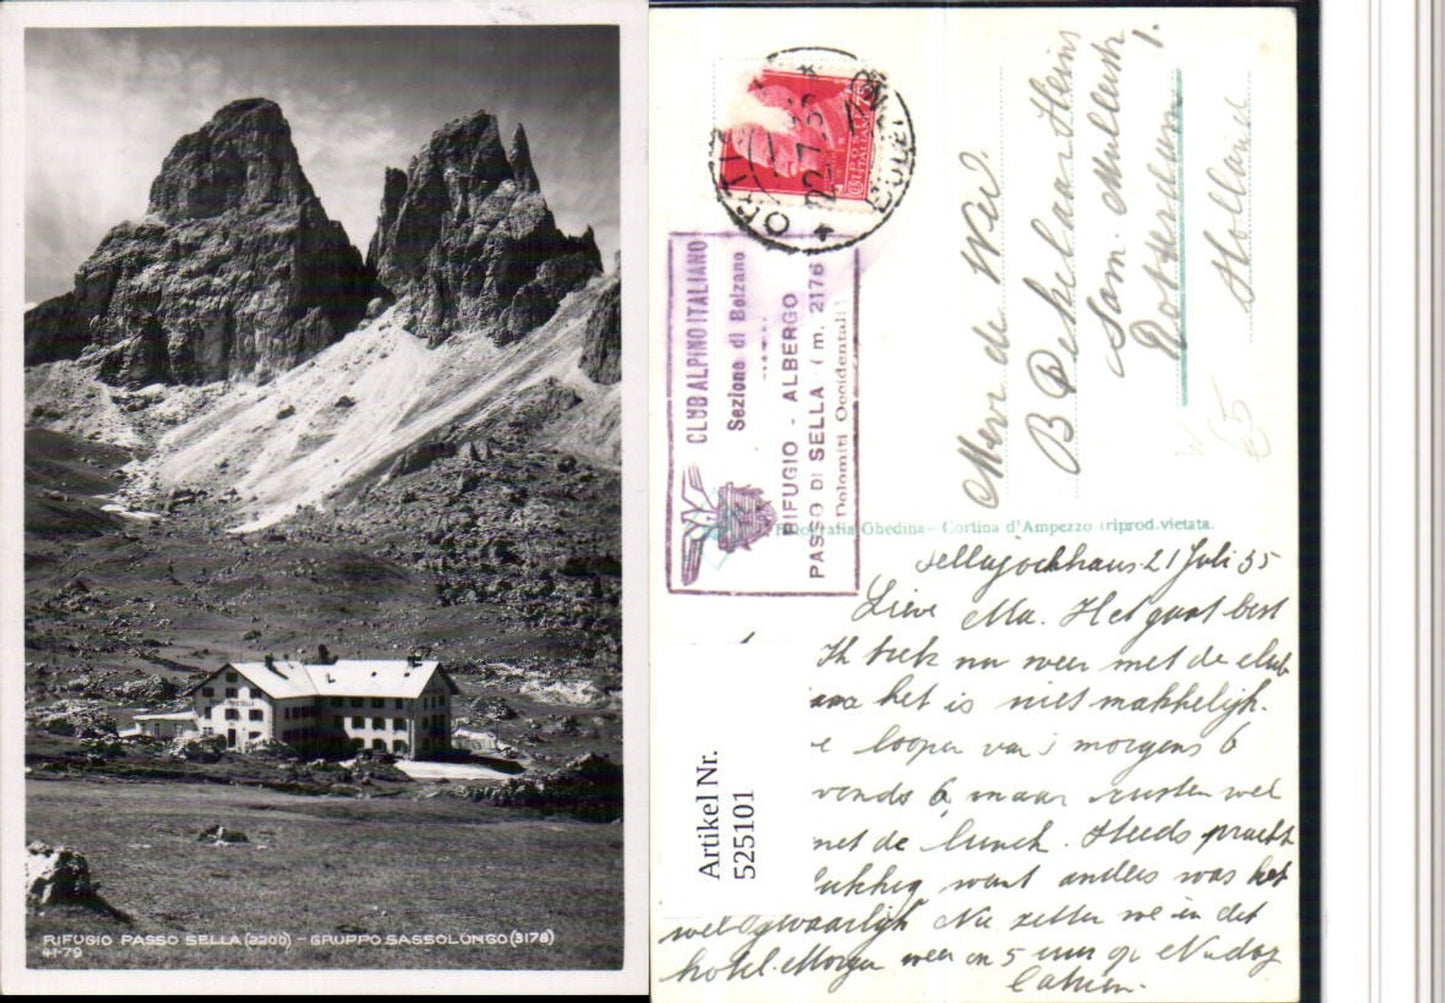 RIFUGIO PASSO SELLA (2200) - GRUPPO SASSOLUNGO (3178)
41-79
POSTE
ITALIANE
ORTIZEI
22.7.35
CLUB ALPINO ITALIANO
Sezione di Bolzano
RIFUGIO - ALBERGO
PASSO DI SELLA (m. 2176
Dolomiti Occidentali
Mevr de Wed.
B Pekelaar Heins
Sam. Mullerstr 1.
Rotterdam
Holland
65
Fotografia Ghedina - Cortina d'Ampezzo (riprod.vietata.
Sellajochhaus 21 Juli 35
Lieve Ma. Het gaat best
Ik trek nu weer met de club
het is niet makkelijk.
loopen van 's morgens 6
6, maar rusten wel
met de lunch. Steeds pracht
want anders was het
wel gevaarlijk Nu zitten we in dit
hotel. Morgen weer om 5 uur op
Artikel Nr.
525101